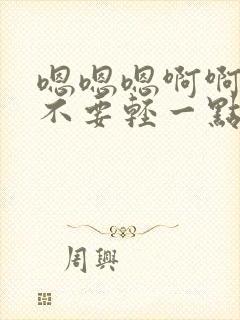 嗯嗯嗯啊啊
不要輕一點
周興